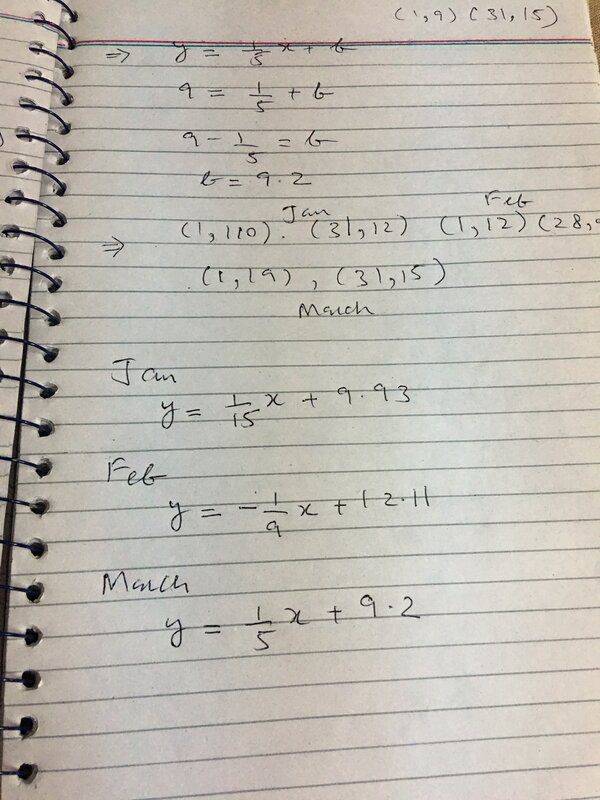 (1,9) (31,15)
⇒ y = 1/5 x + b
9 = 1/5 + b
9 - 1/5 = b
b = 9.2
Jan Feb
⇒ (1,110). (31,12) (1,12) (28,9
(1,19), (31,15)
March
Jan
y = 1/15 x + 9.93
Feb
y = -1/9 x + 12.11
March
y = 1/5 x + 9.2